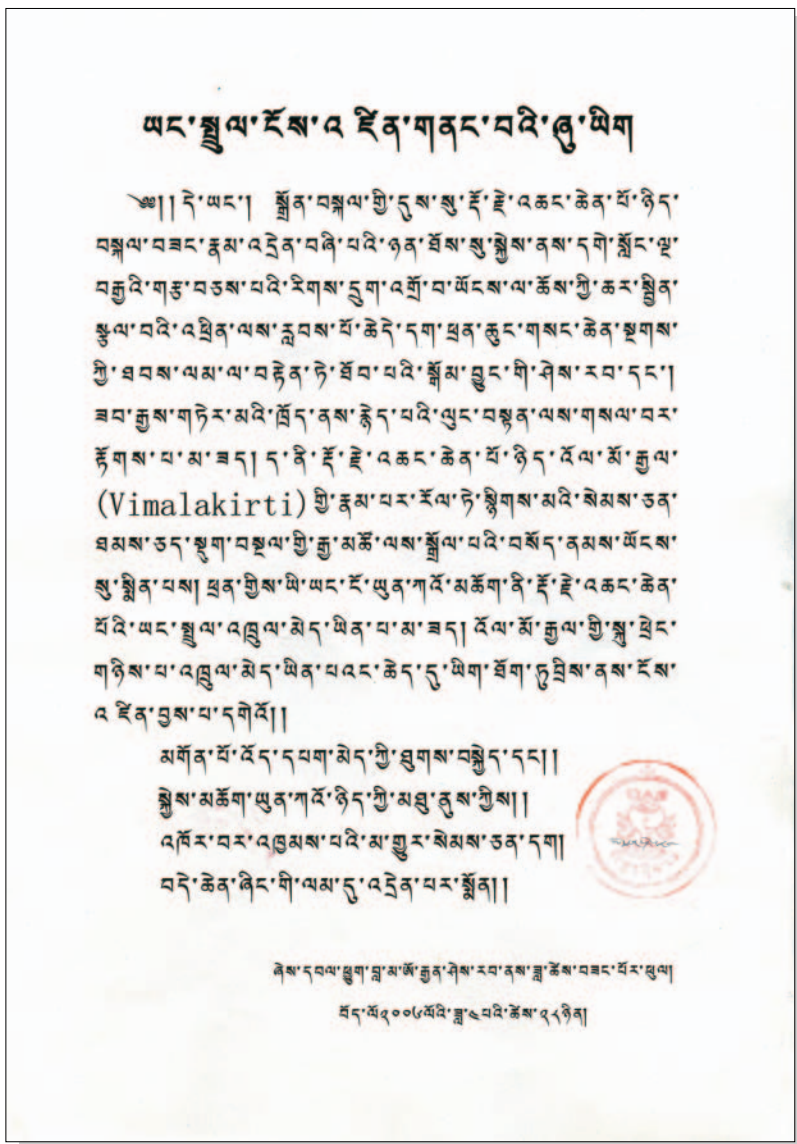 ཡང་སྤྲུལ་ངོས་འ ཛིན་གནང་བའི་ཞུ་ཡིག
༄༅།། དེ་ཡང་། སྔོན་བསྐལ་གྱི་དུས་སུ་རྡོ་རྗེ་འཆང་ཆེན་པོ་ཉིད་
བསྐལ་བཟང་རྣམ་འདྲེན་བཞི་པའི་ཉན་ཐོས་སུ་སྐྱེས་ནས་དགེ་སློང་ལྔ་
བརྒྱའི་གཙོ་བཅས་པའི་རིགས་དྲུག་འགྲོ་བ་ཡོངས་ལ་ཆོས་ཀྱི་ཆར་སྤྲིན་
སྩལ་བའི་འཕྲིན་ལས་རླབས་པོ་ཆེདེ་དག་ཕྲན་ཆུང་གསང་ཆེན་སྔགས་
ཀྱི་ཐབས་ལམ་ལ་བརྟེན་ཏེ་ཐོབ་པའི་སྒོམ་བྱུང་གི་ཤེས་རབ་དང་།
ཟབ་རྒྱས་གཏེར་མའི་ཁྲོད་ནས་རྙེད་པའི་ལུང་བསྟན་ལས་གསལ་བར་
རྟོགས་པ་མ་ཟད། ད་ནི་རྡོ་རྗེ་འཆང་ཆེན་པོ་ཉིད་འོལ་མོ་རྒྱལ་
(Vimalakirti)གྱི་རྣམ་པར་རོལ་ཏེ་སྙིགས་མའི་སེམས་ཅན་
ཐམས་ཅད་སྡུག་བསྔལ་གྱི་རྒྱ་མཚོ་ལས་སྒྲོལ་པའི་བསོད་ནམས་ཡོངས་
སུ་སྨིན་པས། ཕྲན་གྱིས་ཡི་ཡང་ངོ་ཡུན་ཀའོ་མཆོག་ནི་རྡོ་རྗེ་འཆང་ཆེན་
པོའི་ཡང་སྤྲུལ་འཁྲུལ་མེད་ཡིན་པ་མ་ཟད། འོལ་མོ་རྒྱལ་གྱི་སྐུ་ཕྲེང་
གཉིས་པ་འཁྲུལ་མེད་ཡིན་པའང་ཆེད་དུ་ཡིག་ཐོག་ཏུ་བྲིས་ནས་ངོས་
འ ཛིན་བྱས་པ་དགེའོ།།
མགོན་པོ་འོད་དཔག་མེད་ཀྱི་ཐུགས་བསྐྱེད་དང་།།
སྐྱེས་མཆོག་ཡུན་ཀའོ་ཉིད་ཀྱི་མཐུ་ནུས་ཀྱིས།།
འཁོར་བར་འཁྱམས་པའི་མ་གྱུར་སེམས་ཅན་དག།
བདེ་ཆེན་ཞིང་གི་ལམ་དུ་འདྲེན་པར་སྨོན།།
ཞེས་དབལ་ཕྱུག་བླ་མ་ཨོ་རྒྱན་ཤེས་རབ་ནས་ཟླ་ཚེས་བཟང་པོར་ཕུལ།
བོད་ལོ༢༠༠༦ལོའི་ཟླ་༤པའི་ཚེས་༢༨ཉིན།